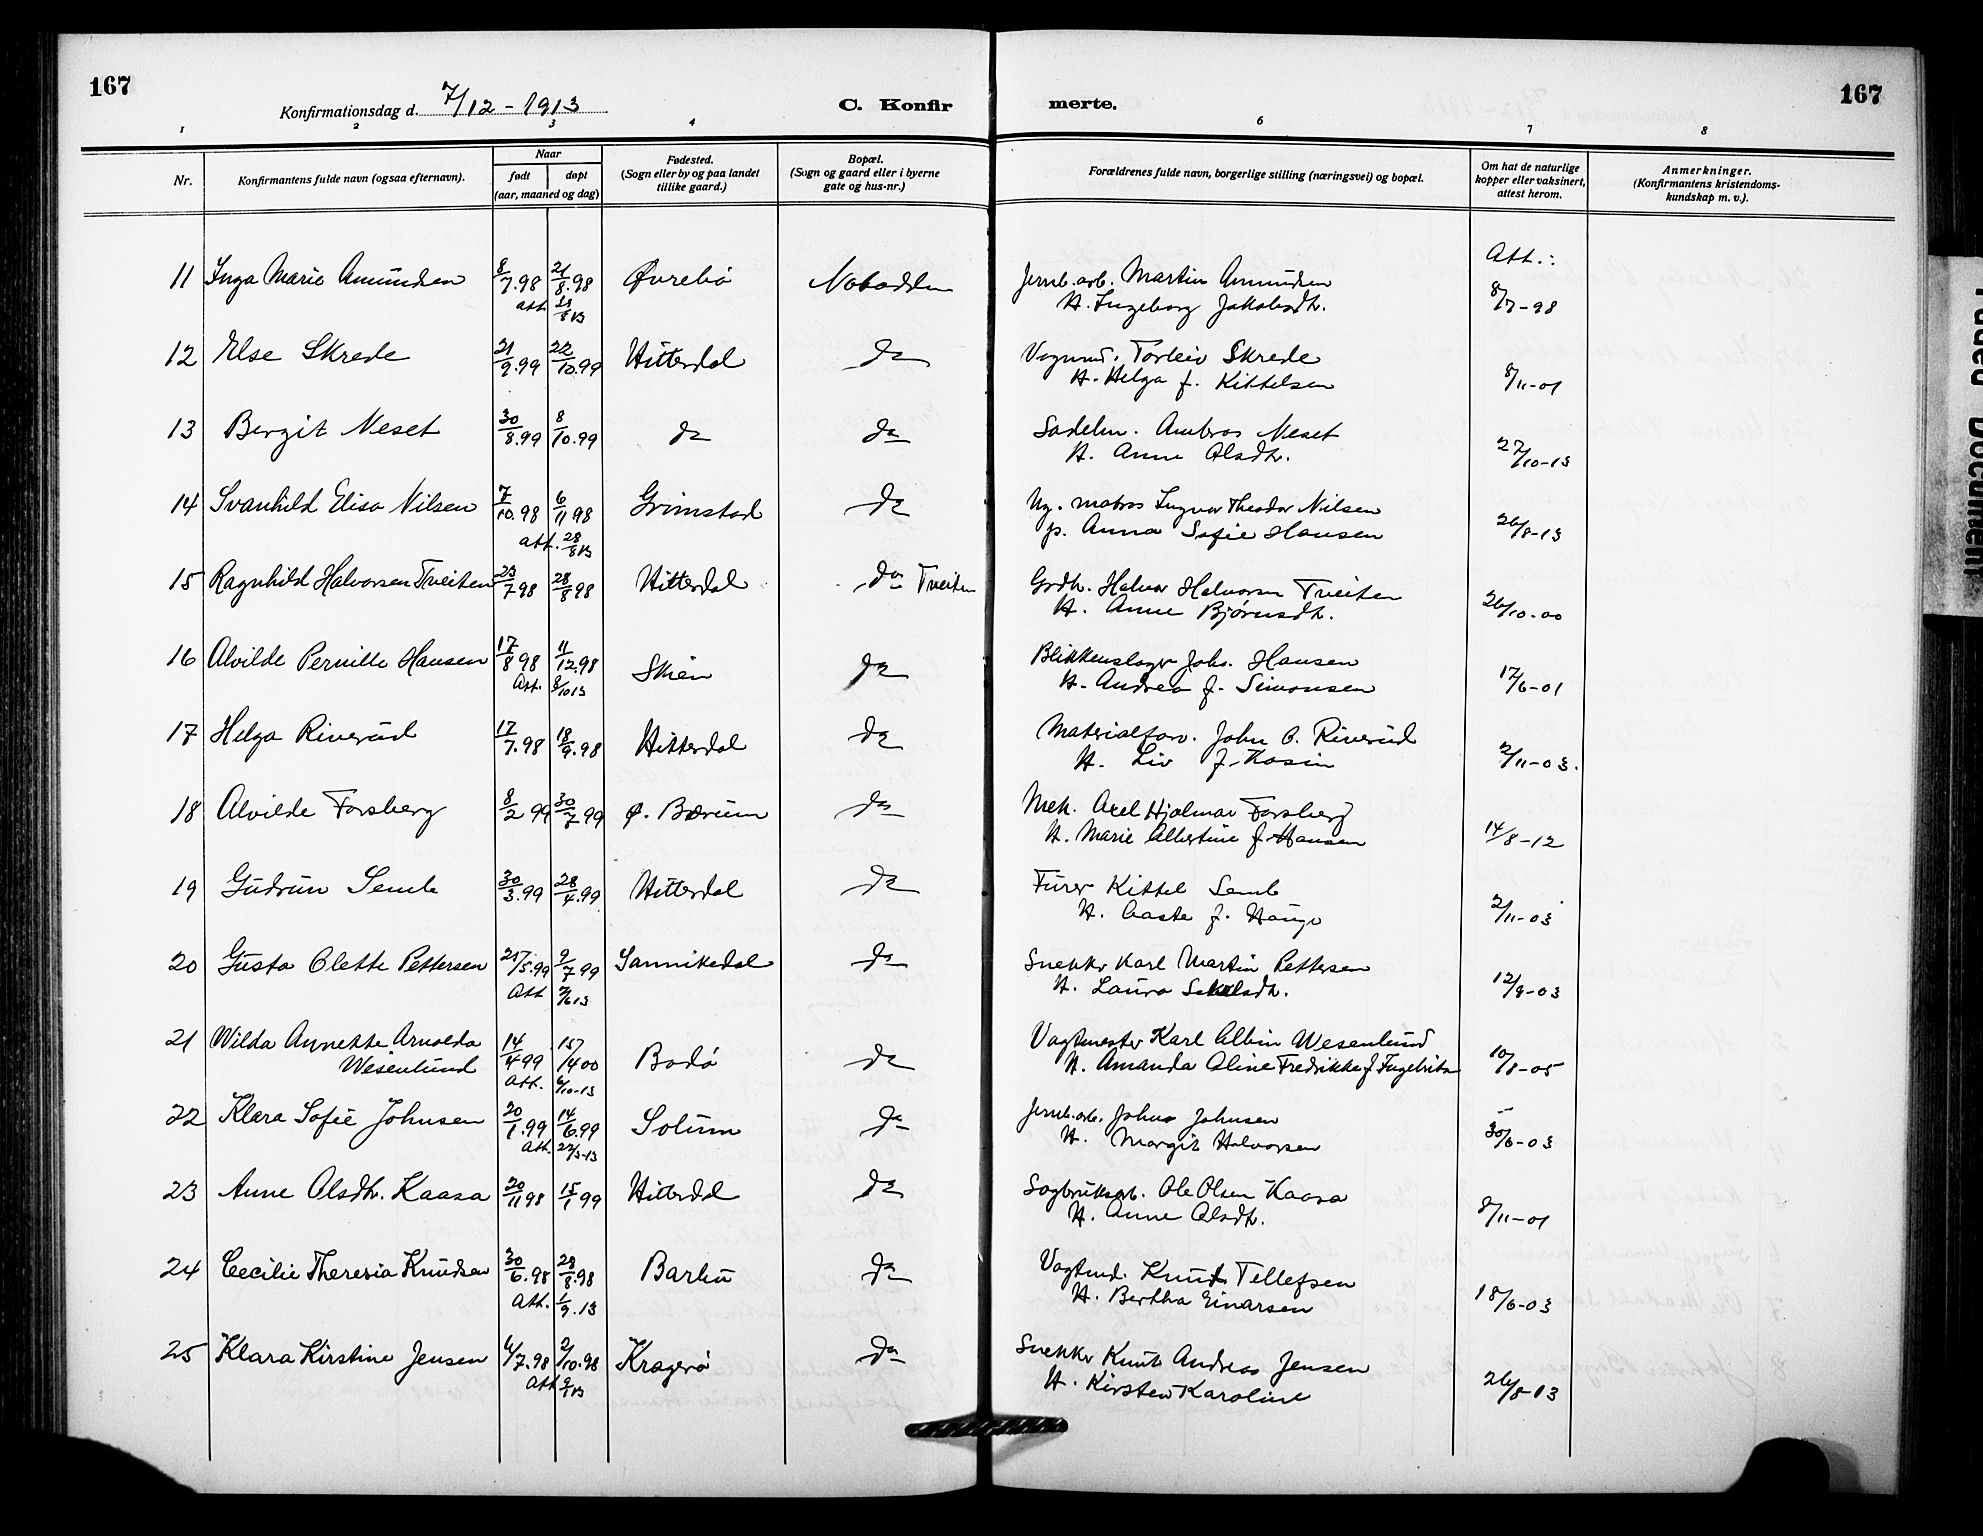 167
Konfirmationsdag d. 7/12 - 1913
C. Konfir merte.
167
1 2 3 4 5 6 7 8
Nr.
Konfirmantens fulde navn (ogsaa efternavn).
Naar
født
døpt
(aar, maaned og dag)
Fødested.
(Sogn eller by og paa landet
tillike gaard.)
Bopæl.
(Sogn og gaard eller i byerne
gate og hus-nr.)
Forældrenes fulde navn, borgerlige stilling (næringsvei) og bopæl.
Om hat de naturlige
kopper eller vaksinert,
attest herom.
Anmerkninger.
(Konfirmantens kristendoms-
kundskap m. v.).
Att.:
11 Inga Marie Amundsen 8/7.98 21/8.98 Øvrebø Notodden Jernb.arb. Martin Amundsen
att. H. Ingeborg Jakobsdtr. 8/7-98
12 Else Skrede 21/9.99 22/10.99 Hitterdal do Vognmd. Torleiv Skrede
H. Helga f. Kittelsen 8/11-01
13 Bergit Meset 30/8.99 8/10.99 do do Sadelm. Ambros Meset
H. Anne Olsdtr. 27/10-13
14 Svanhild Elisa Nilsen 7/10.98 6/11 98 Grimstad do Ug. matros Ingvar Theodor Nilsen
att. 28/8 13 p. Anna Sofie Hansen 26/8-13
15 Ragnhild Halvorsen Tveiten 23/7 98 28/8 98 Hitterdal do Tveiten Grdbr. Halvor Halvorsen Tveiten
H. Anne Bjørnsdtr. 26/10-00
16 Alvilde Pernille Hansen 17/8 98 11/12.98 Skien do Blikkenslager Johs. Hansen
Att. 8/10 13 H. Andrea f. Simonsen 17/6-01
17 Helga Riverud 17/7.98 18/9.98 Hitterdal do Materialforv. John O. Riverud
H. Liv f. Kosin 2/11-03.
18 Alvilde Forsberg 8/2 99 30/7 99 Ø. Bærum do Mek. Axel Hjalmar Forsberg
H. Marie Albertine f. Hansen 14/8-12
19 Gudrun Semb 30/3.99 28/4.99 Hitterdal do Furer Kittel Semb
H. Aaste f. Haugo 2/11-03
20 Gusta Olette Pettersen 25/5.99 9/7 99 Sannikedal do Snekker Karl Martin Pettersen
Att H. Laura 12/9-03
21 Wilda Annette Arnolda 14/4 99 15/4 00 Bodø do Vagtmester Karl Albin Wesenlund
Wesenlund Att. 6/10-13 H. Amanda Oline Fredrikke f. Ingebritsn 10/8-05
22 Klara Sofie Johnsen 20/1.99 14/6.99 Solum do Jernb.arb. Johns Johnsen
Att. H. Margit Halvorsen 30/6-03
23 Anne Olsdtr. Kaasa 20/11 98 15/1 99 Hitterdal do Sagbruksarb. Ole Olsen Kaasa
H. Anne Olsdtr. 8/11-01
24 Cecilie Theresia Knudsen 30/6.98 28/8.98 Barbu do Vagtmd. Knut Tellefsen
Att. 1/9.13 H. Bertha Einarsen 18/6-03
25 Klara Kirstine Jensen 6/7.98 2/10.98 Kragerø do Snekker Knut Andreas Jensen
Att H. Kirsten Karoline 26/8-13